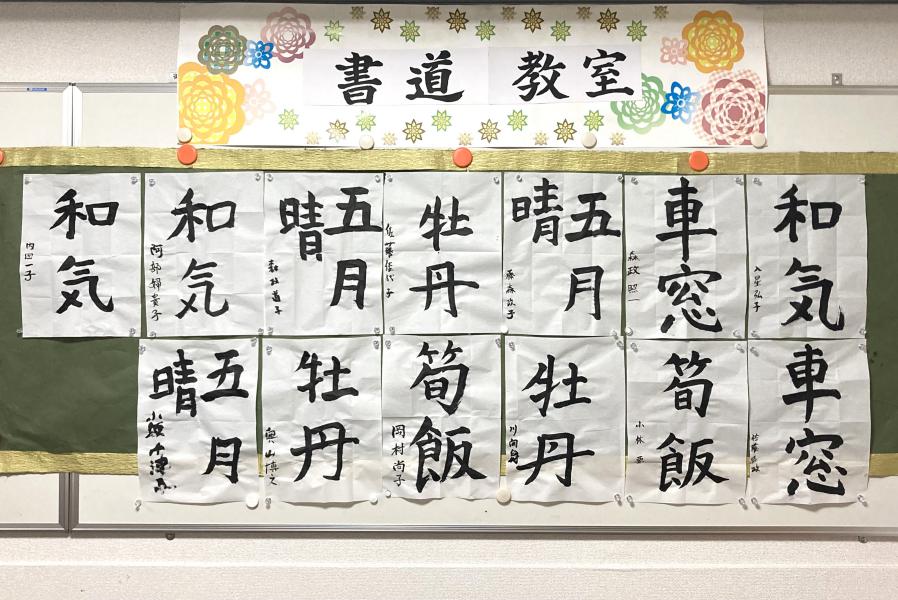 書道 教室
和気
入星弘子
車窓
森政 照一
五月晴
藤森欣子
牡丹
佐藤佳代子
五月晴
森政道子
和気
阿部婦貴子
和気
内田一子
車窓
筍飯
小林 亜
牡丹
筍飯
岡村尚子
牡丹
奥山博之
五月晴